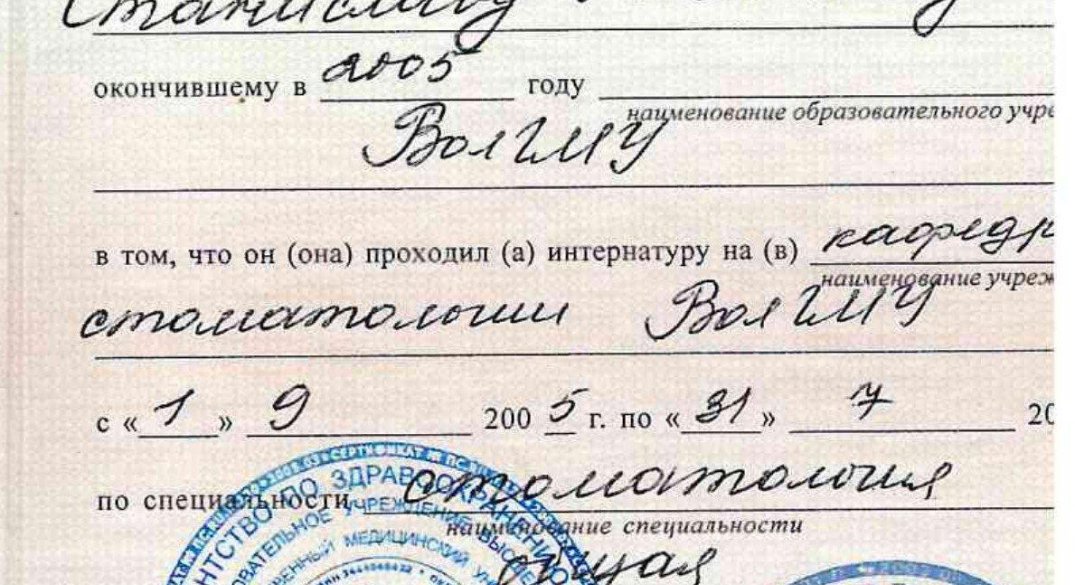 Станиславу
окончившему в 2005 году
наименование образовательного учре
ВолГМУ
в том, что он (она) проходил (а) интернатуру на (в) кафедр
наименование учреж
стоматологии ВолГМУ
с « 1 » 9 200 5 г. по « 31 » 7 20
по специальности стоматология
наименование специальности
общая
ЗДРАВООХРАНЕНИЮ
УЧРЕЖДЕНИЕ
МЕДИЦИНСКИЙ